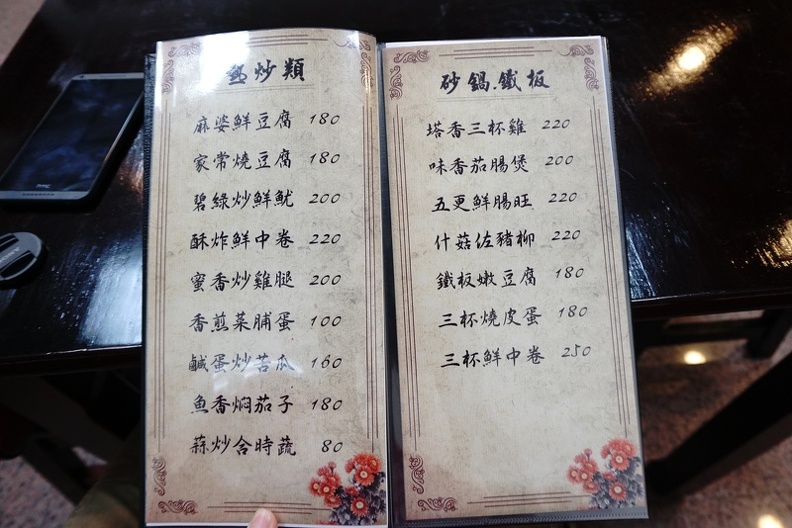 熱炒類
麻婆鮮豆腐 180
家常燒豆腐 180
碧綠炒鮮魷 200
酥炸鮮中卷 220
蜜香炒雞腿 200
香煎菜脯蛋 100
鹹蛋炒苦瓜 160
魚香焖茄子 180
蒜炒合時蔬 80
砂鍋.鐵板
塔香三杯雞 220
味香茄腸煲 200
五更鮮腸旺 220
什菇佐豬柳 220
鐵板嫩豆腐 180
三杯燒皮蛋 180
三杯鮮中卷 250
hTC